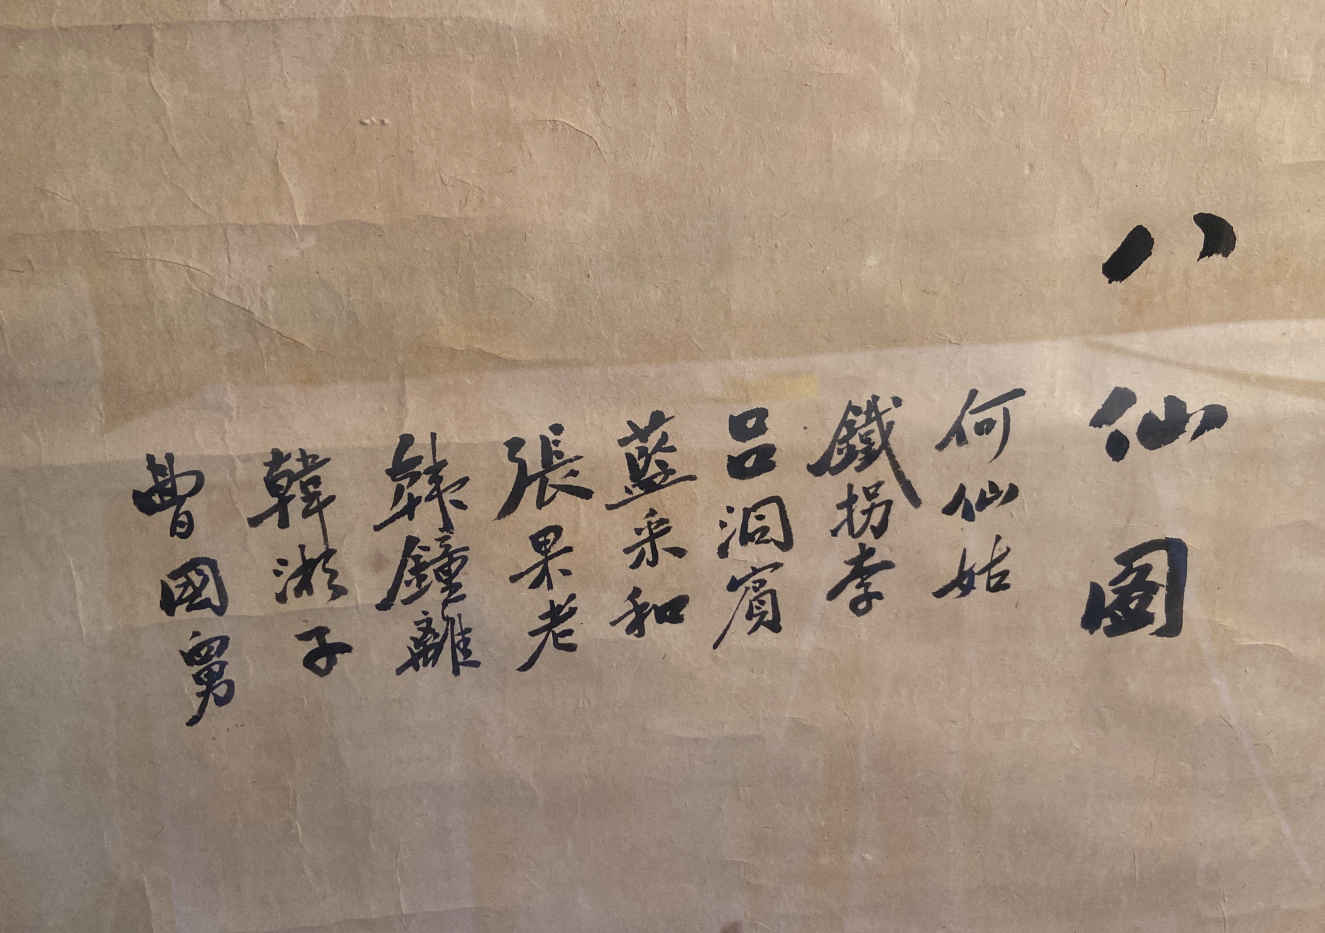 八仙圖
何仙姑
鐵拐李
呂洞賓
藍采和
張果老
韩鐘離
韓湘子
曹國舅